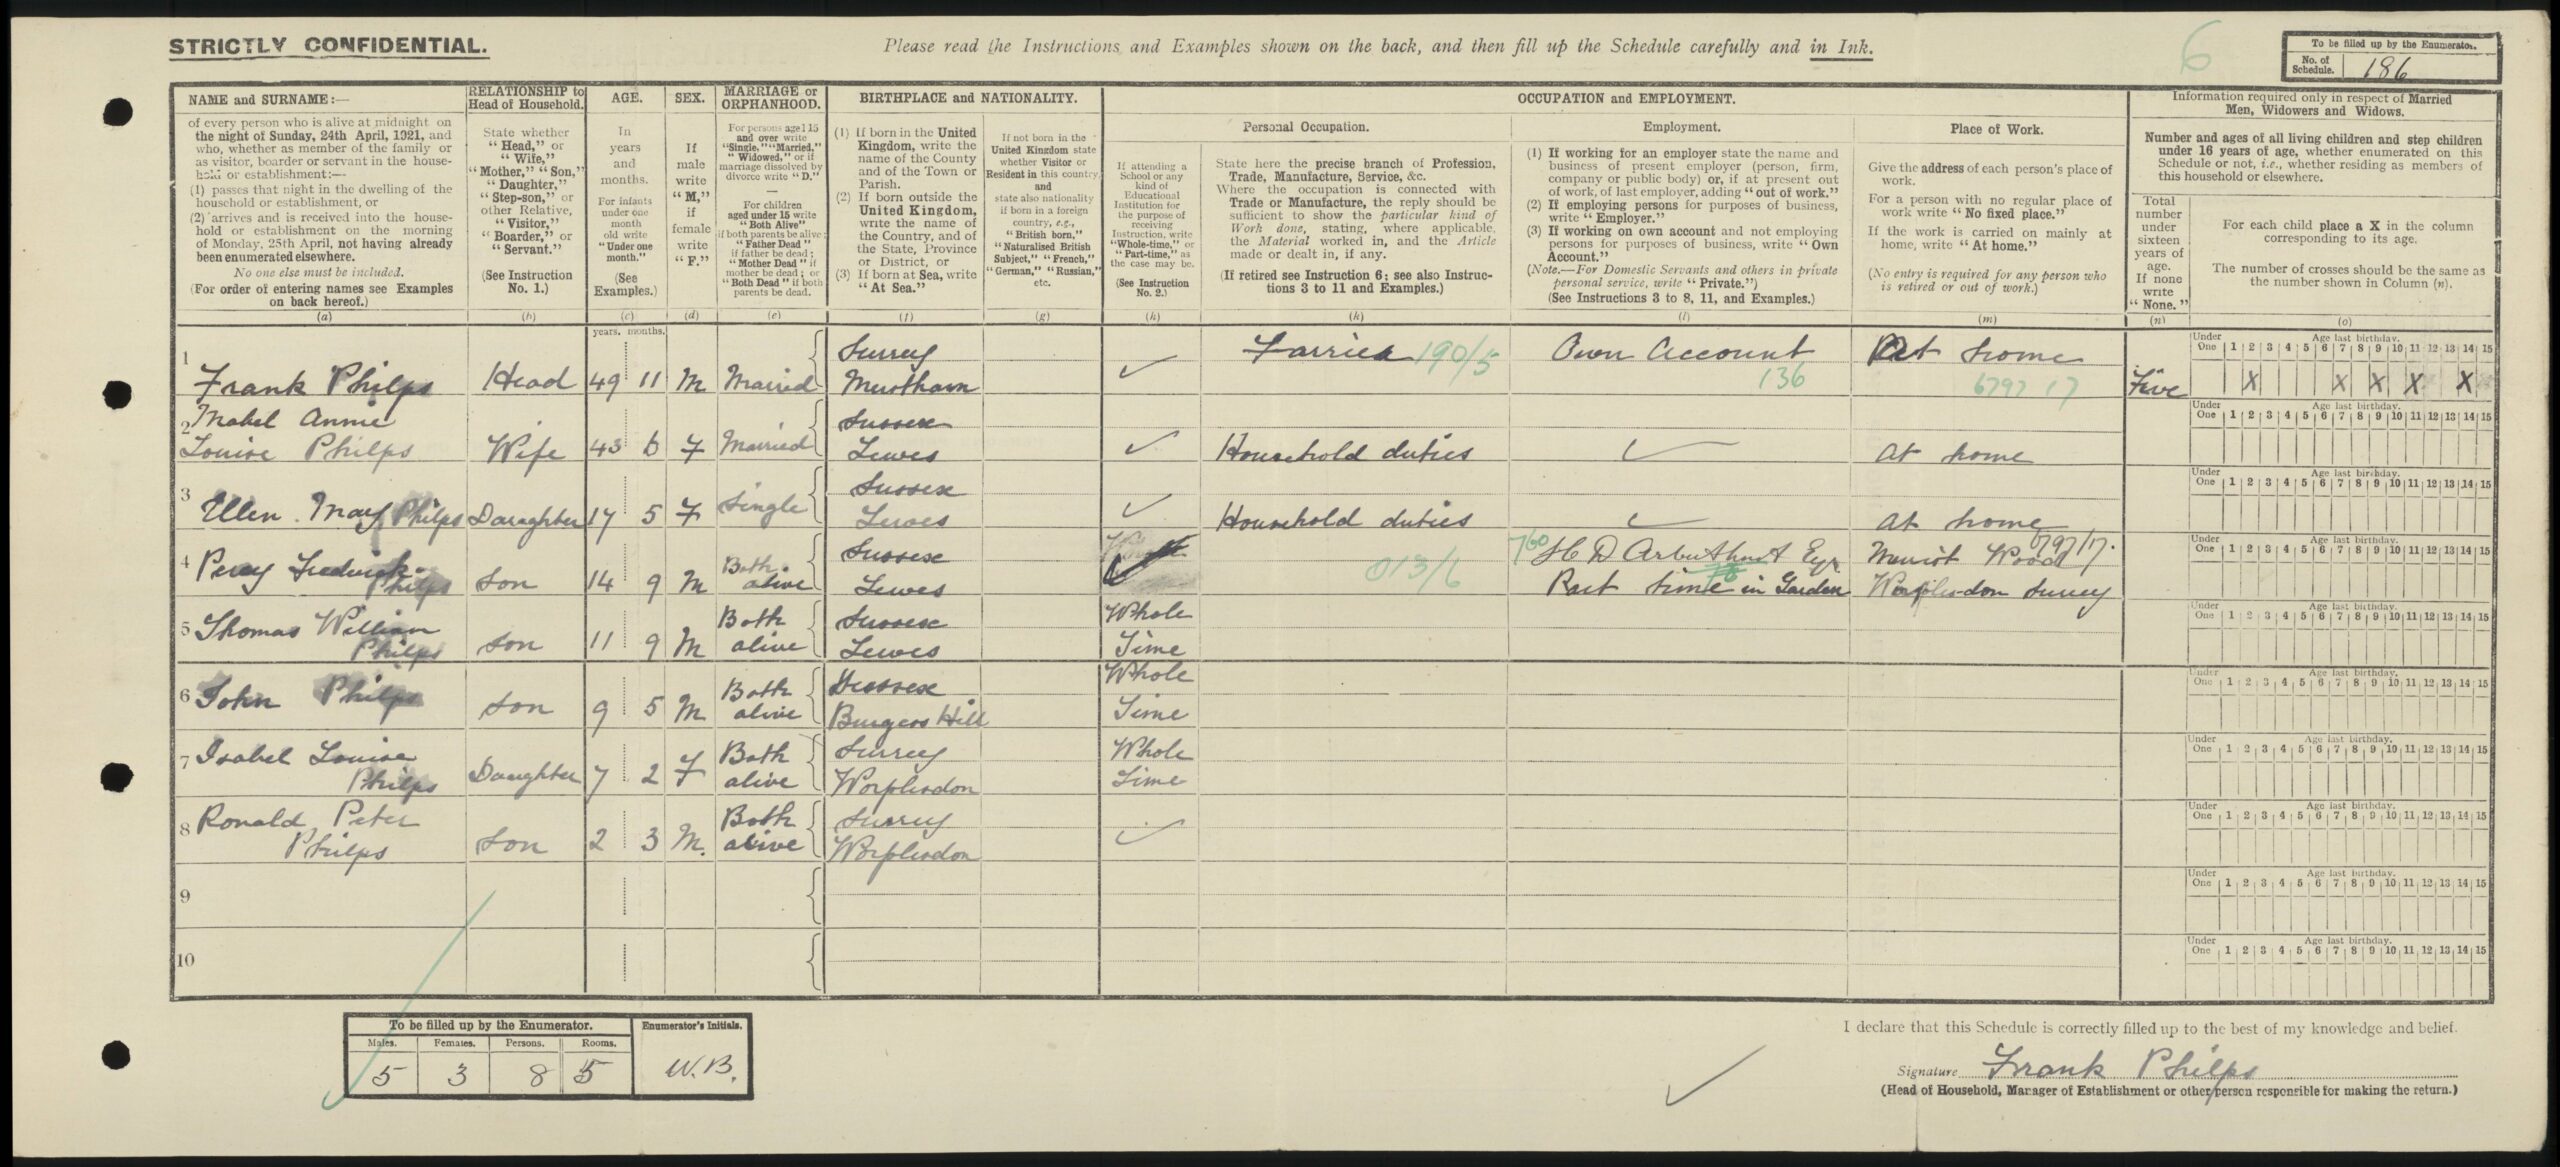 STRICTLY CONFIDENTIAL.
Please read the Instructions and Examples shown on the back, and then fill up the Schedule carefully and in Ink.
6
To be filled up by the Enumerator.
No. of Schedule. 186
NAME and SURNAME:—
of every person who is alive at midnight on
the night of Sunday, 24th April, 1921, and
who, whether as member of the family or
as visitor, boarder or servant in the house-
hold or establishment:—
(1) passes that night in the dwelling of the
household or establishment, or
(2) arrives and is received into the house-
hold or establishment on the morning
of Monday, 25th April, not having already
been enumerated elsewhere.
No one else must be included.
(For order of entering names see Examples
on back hereof.)
(a)
RELATIONSHIP to
Head of Household.
State whether
"Head," or
"Wife,"
"Mother," "Son,"
"Daughter,"
"Step-son," or
other Relative,
"Visitor,"
"Boarder," or
"Servant."
(See Instruction
No. 1.)
(b)
AGE.
In
years
and
months.
For infants
under one
month
old write
"Under one
month."
(See
Examples.)
(c)
years. months.
SEX.
If
male
write
"M,"
if
female
write
"F."
(d)
MARRIAGE or
ORPHANHOOD.
For persons aged 15
and over write
"Single," "Married,"
"Widowed," or if
marriage dissolved by
divorce write "D."
—
For children
aged under 15 write
"Both Alive"
if both parents be alive;
"Father Dead"
if father be dead;
"Mother Dead" if
mother be dead; or
"Both Dead" if both
parents be dead.
(e)
BIRTHPLACE and NATIONALITY.
(1) If born in the United
Kingdom, write the
name of the County
and of the Town or
Parish.
(2) If born outside the
United Kingdom,
write the name of
the Country, and of
the State, Province
or District, or
(3) If born at Sea, write
"At Sea."
(f)
If not born in the
United Kingdom state
whether Visitor or
Resident in this country,
and
state also nationality
if born in a foreign
country, e.g.,
"British born,"
"Naturalised British
Subject," "French,"
"German," "Russian,"
etc.
(g)
OCCUPATION and EMPLOYMENT.
If attending a
School or any
kind of
Educational
Institution for
the purpose of
receiving
Instruction, write
"Whole-time," or
"Part-time," as
the case may be.
(See Instruction
No. 2.)
(h)
Personal Occupation.
State here the precise branch of Profession,
Trade, Manufacture, Service, &c.
Where the occupation is connected with
Trade or Manufacture, the reply should be
sufficient to show the particular kind of
Work done, stating, where applicable,
the Material worked in, and the Article
made or dealt in, if any.
(If retired see Instruction 6; see also Instruc-
tions 3 to 11 and Examples.)
(k)
Employment.
(1) If working for an employer state the name and
business of present employer (person, firm,
company or public body) or, if at present out
of work, of last employer, adding "out of work."
(2) If employing persons for purposes of business,
write "Employer."
(3) If working on own account and not employing
persons for purposes of business, write "Own
Account."
(Note.—For Domestic Servants and others in private
personal service, write "Private.")
(See Instructions 3 to 8, 11, and Examples.)
(l)
Place of Work.
Give the address of each person's place of
work.
For a person with no regular place of
work write "No fixed place."
If the work is carried on mainly at
home, write "At home."
(No entry is required for any person who
is retired or out of work.)
(m)
Information required only in respect of Married
Men, Widowers and Widows.
Number and ages of all living children and step children
under 16 years of age, whether enumerated on this
Schedule or not, i.e., whether residing as members of
this household or elsewhere.
Total
number
under
sixteen
years of
age.
If none
write
"None."
(n)
For each child place a X in the column
corresponding to its age.
The number of crosses should be the same as
the number shown in Column (n).
(o)
1 Frank Philps Head 49 11 M Married Surrey Merstham Farrier 190/5 Own Account 136 At home 6797 17 Five
Under One 1 2 3 4 5 6 7 8 9 10 11 12 13 14 15
Age last birthday.
X X X X X
2 Mabel Annie
Louise Philps Wife 43 6 F Married Sussex Lewes Household duties At home
Under One 1 2 3 4 5 6 7 8 9 10 11 12 13 14 15
Age last birthday.
3 Ellen May Philps Daughter 17 5 F Single Sussex Lewes Household duties At home
Under One 1 2 3 4 5 6 7 8 9 10 11 12 13 14 15
Age last birthday.
4 Percy Frederick
Philps Son 14 9 M Both alive Sussex Lewes 013/6 760 H D Arbuthnot Esqr 6797/17.
Part time in Garden Merrist Wood
Worplesdon Surrey
Under One 1 2 3 4 5 6 7 8 9 10 11 12 13 14 15
Age last birthday.
5 Thomas William
Philps Son 11 9 M Both alive Sussex Lewes Whole Time
Under One 1 2 3 4 5 6 7 8 9 10 11 12 13 14 15
Age last birthday.
6 John Philps Son 9 5 M Both alive Sussex Burgess Hill Whole Time
Under One 1 2 3 4 5 6 7 8 9 10 11 12 13 14 15
Age last birthday.
7 Isabel Louise
Philps Daughter 7 2 F Both alive Surrey Worplesdon Whole Time
Under One 1 2 3 4 5 6 7 8 9 10 11 12 13 14 15
Age last birthday.
8 Ronald Peter
Philps Son 2 3 M. Both alive Surrey Worplesdon
Under One 1 2 3 4 5 6 7 8 9 10 11 12 13 14 15
Age last birthday.
9
Under One 1 2 3 4 5 6 7 8 9 10 11 12 13 14 15
Age last birthday.
10
Under One 1 2 3 4 5 6 7 8 9 10 11 12 13 14 15
Age last birthday.
To be filled up by the Enumerator.
Males. Females. Persons. Rooms.
5 3 8 5
Enumerator's Initials.
W.B.
I declare that this Schedule is correctly filled up to the best of my knowledge and belief.
Signature Frank Philps
(Head of Household, Manager of Establishment or other person responsible for making the return.)